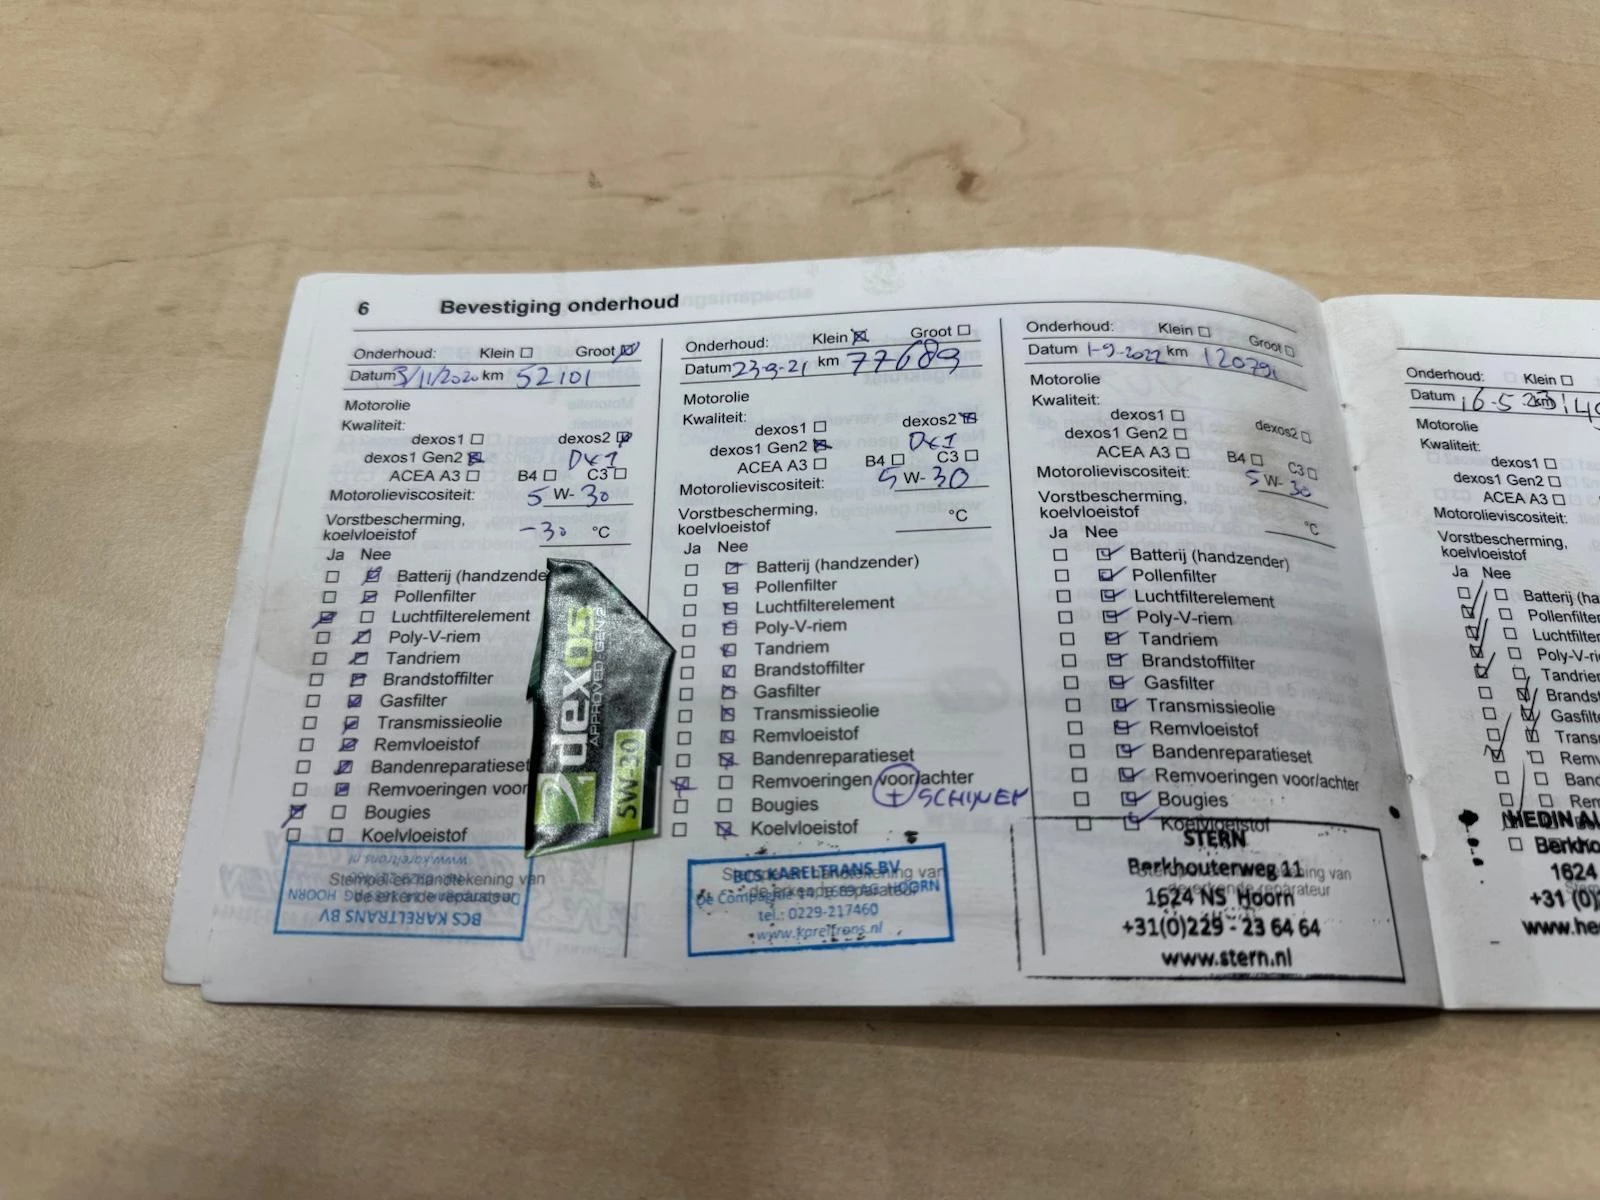 6 Bevestiging onderhoud
Onderhoud: Klein Groot
Datum 3/11/2020 km 52101
Motorolie
Kwaliteit:
dexos1 dexos2
dexos1 Gen2
ACEA A3 B4 C3
Motorolieviscositeit: 5 W- 30
Vorstbescherming,
koelvloeistof -30 °C
Ja Nee
Batterij (handzende
Pollenfilter
Luchtfilterelement
Poly-V-riem
Tandriem
Brandstoffilter
Gasfilter
Transmissieolie
Remvloeistof
Bandenreparatieset
Remvoeringen voor
Bougies
Koelvloeistof
Stempel en handtekening van
de erkende reparateur
BCS KARELTRANS BV
HOORN
www.kareltrans.nl
dexos
APPROVED-GEN 2
5W-30
Onderhoud: Klein Groot
Datum 23-9-21 km 77689
Motorolie
Kwaliteit:
dexos1 dexos2
dexos1 Gen2
ACEA A3 B4 C3
Motorolieviscositeit: 5 W- 30
Vorstbescherming,
koelvloeistof °C
Ja Nee
Batterij (handzender)
Pollenfilter
Luchtfilterelement
Poly-V-riem
Tandriem
Brandstoffilter
Gasfilter
Transmissieolie
Remvloeistof
Bandenreparatieset
Remvoeringen voor/achter
+ SCHIJVEN
Bougies
Koelvloeistof
BCS KARELTRANS BV
De Compagnie 14, 1689 AG HOORN
tel.: 0229-217460
www.kareltrans.nl
Onderhoud: Klein Groot
Datum 1-9-2022 km 120791
Motorolie
Kwaliteit:
dexos1 dexos2
dexos1 Gen2
ACEA A3 B4 C3
Motorolieviscositeit: 5 W- 30
Vorstbescherming,
koelvloeistof °C
Ja Nee
Batterij (handzender)
Pollenfilter
Luchtfilterelement
Poly-V-riem
Tandriem
Brandstoffilter
Gasfilter
Transmissieolie
Remvloeistof
Bandenreparatieset
Remvoeringen voor/achter
Bougies
Koelvloeistof
STERN
Berkhouterweg 11
1624 NS Hoorn
+31(0)229 - 23 64 64
www.stern.nl
Onderhoud: Klein
Datum 16-5 23 km 140
Motorolie
Kwaliteit:
dexos1
dexos1 Gen2
ACEA A3
Motorolieviscositeit:
Vorstbescherming,
koelvloeistof
Ja Nee
Batterij (ha
Pollenfilter
Luchtfilter
Poly-V-rie
Tandrie
Brands
Gasfilte
Trans
Remv
Band
Rem
HEDIN AU
Berkho
1624
+31 (0)
www.he